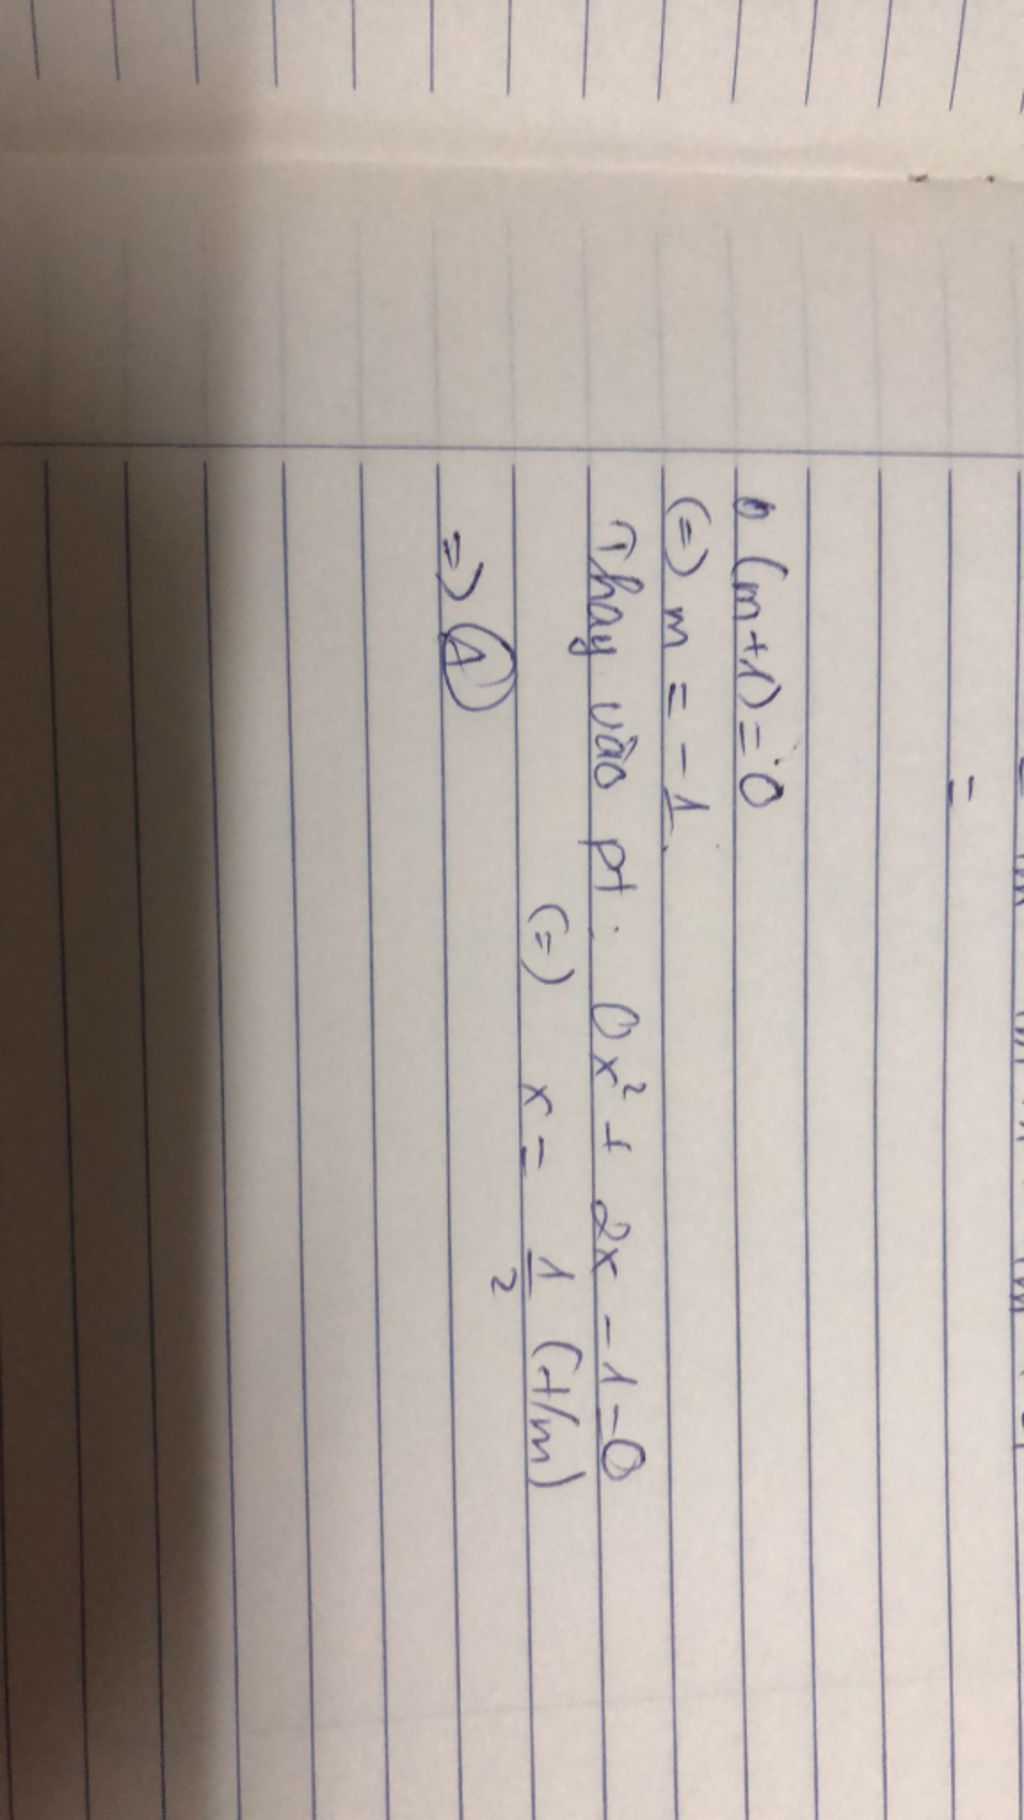 (m+1)=0
(=) m = -1
Thay vào pt: 0x² + 2x - 1 = 0
(=) x = 1/2 (t/m)
=> A